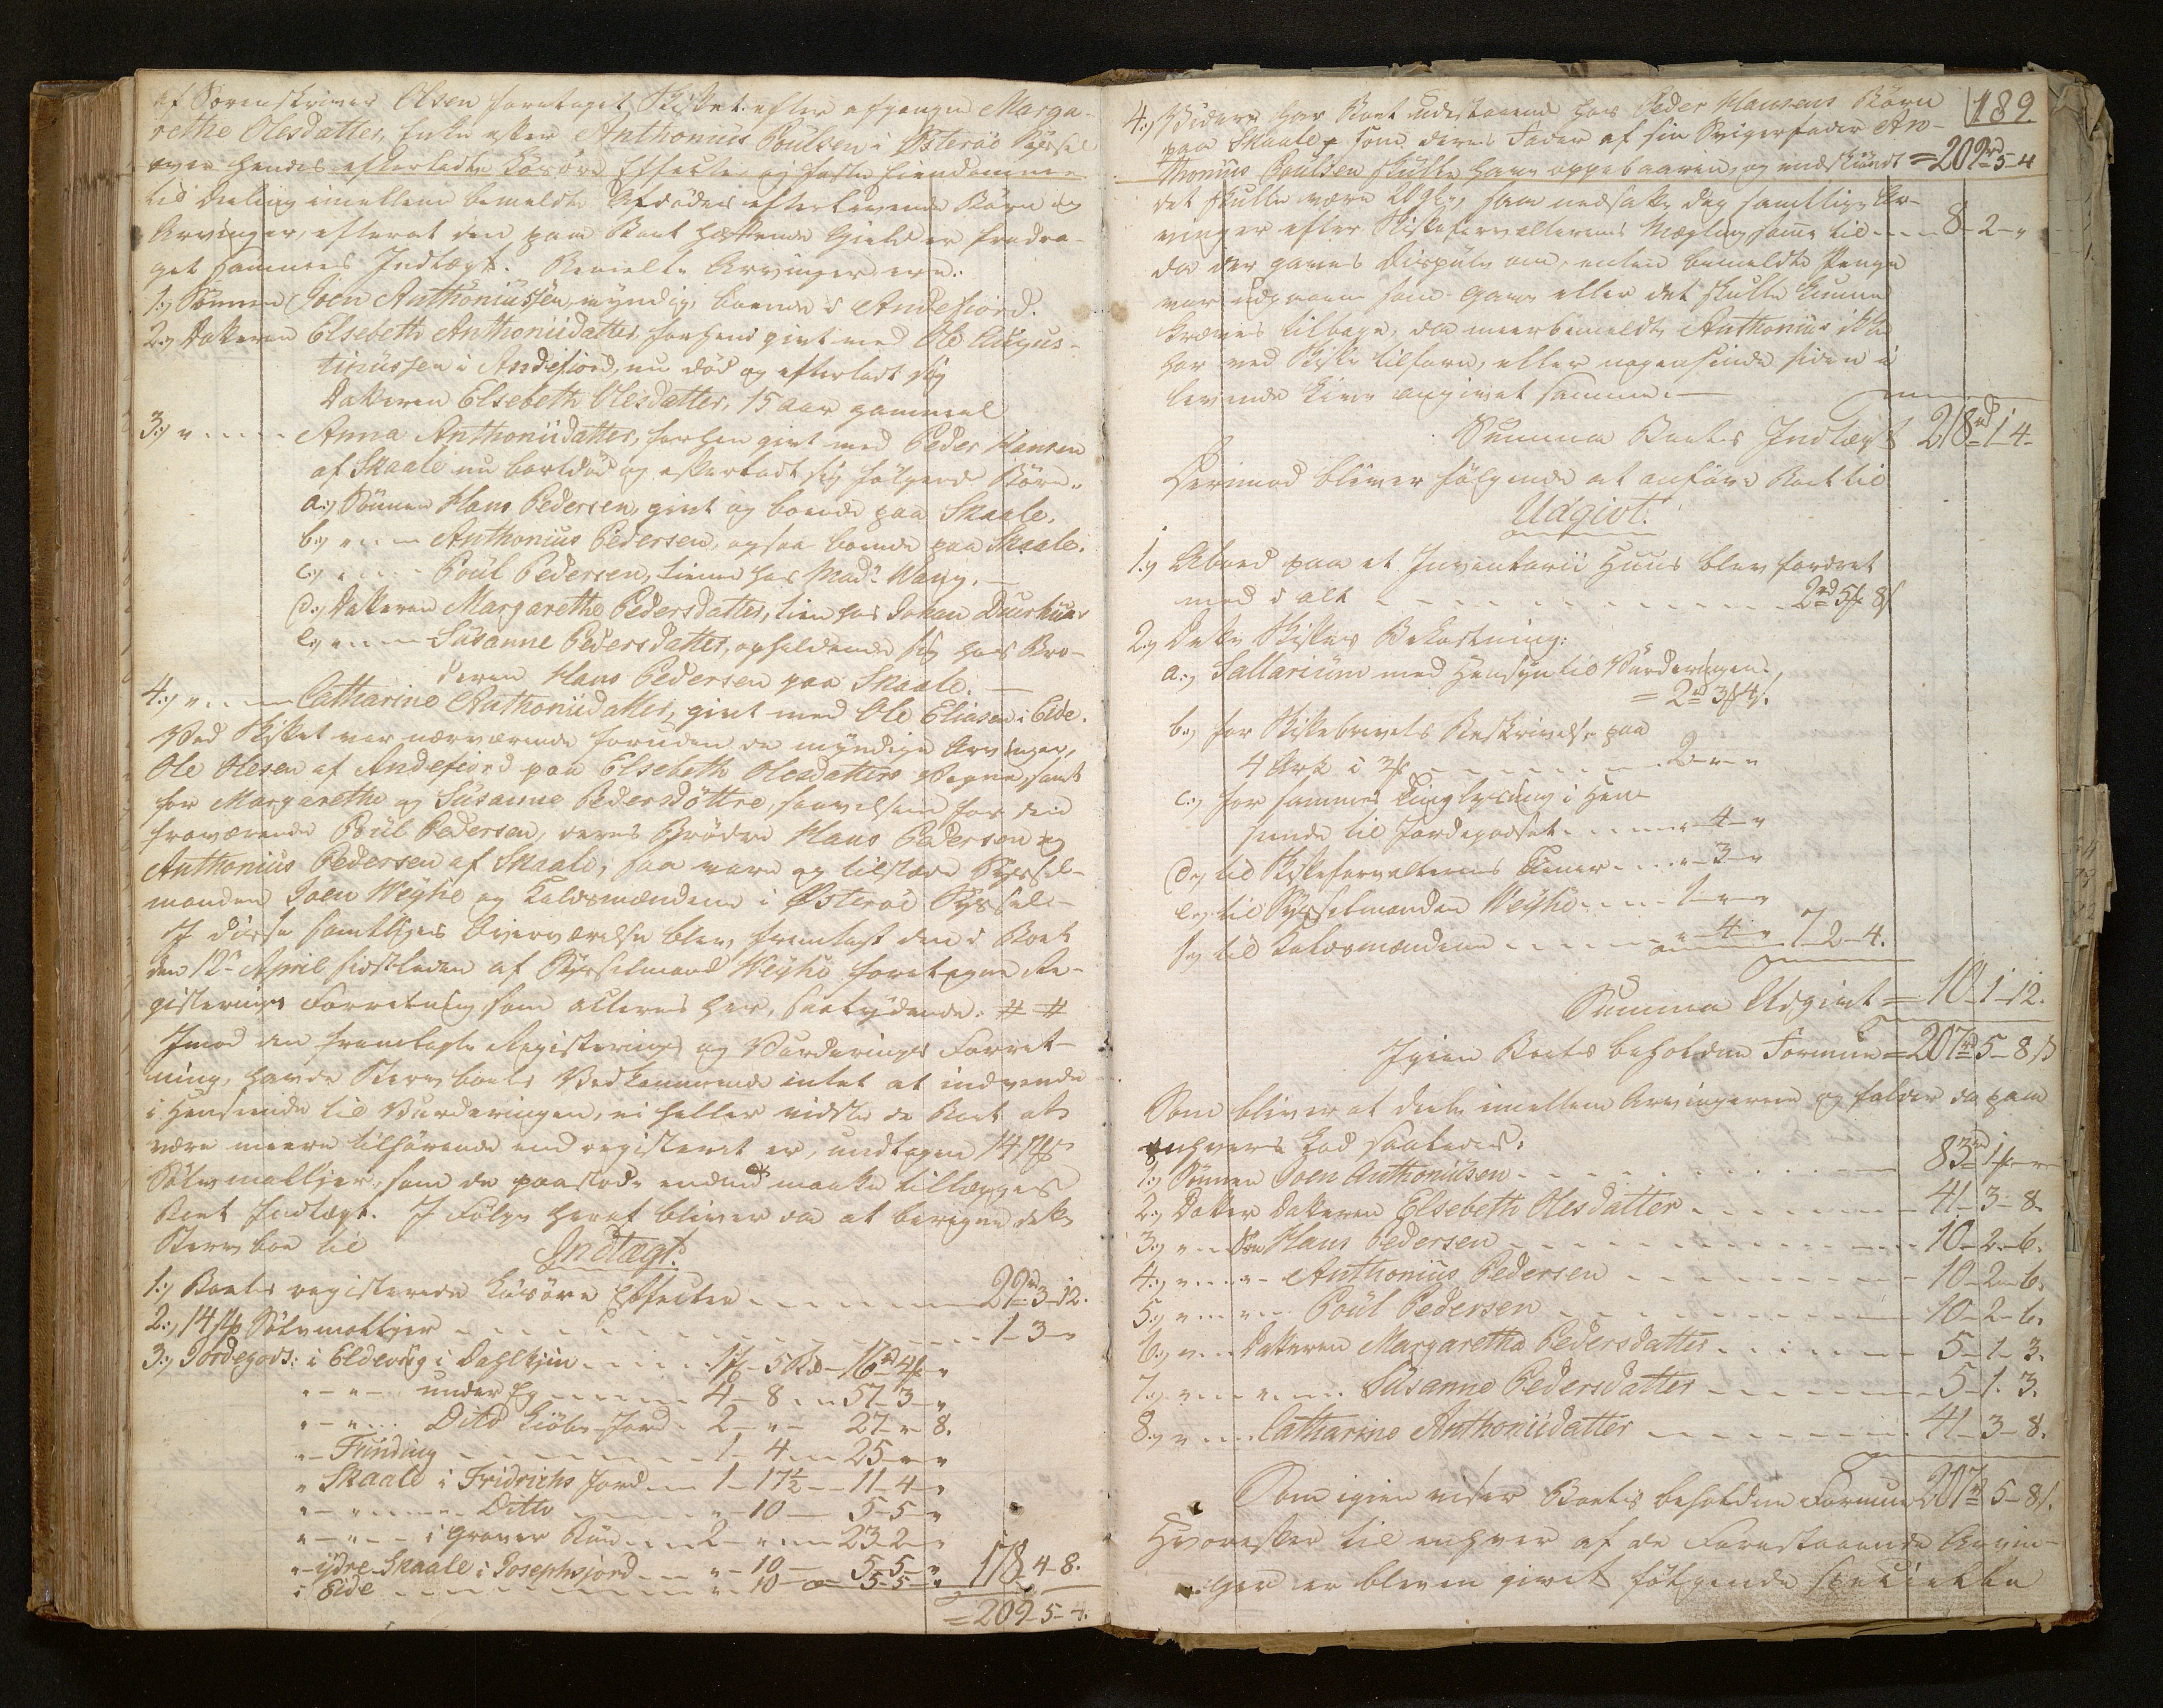 af Sorenskriver Olsen foretaget Skiftet efter afgangne Marga-
rethe Olesdatter, Enke efter Anthonius Poulsen i Østerøe Syssel
over hendes efterladte Løsøre Effecter og faste Eiendomme
til Deeling imellem bemeldte Afdødes efterlevende Børn og
Arvinger, efterat den paa Boet hæftende Gield er fradra-
get sammes Indtægt. Bemelte Arvinger ere:
1.) Sønnen Joen Anthoniussen, myndig, boende i Andefiord.
2.) Datteren Elsebeth Anthoniidatter, forhen givt med Ole Augus-
tinussen i Andefiord, nu død og efterladt sig
Datteren Elsebeth Olesdatter, 15 aar gammel
3.) " - - - - Anna Anthoniidatter, forhen givt med Peder Hansen
af Skaale nu bortdød og efterladt sig følgende Børn.
a.) Sønnen Hans Pedersen, givt og boende paa Skaale.
b.) " - " - Anthonius Pedersen, ogsaa boende paa Skaale.
c.) " - - - Poul Pedersen, tiener hos Mad. Wang. -
d.) Datteren Margarethe Pedersdatter, tien hos Johan Duurhuus
e.) " - " - Susanne Pedersdatter, opholdende sig hos Bro-
deren Hans Pedersen paa Skaale. -
4.) " - - - Catharine Anthoniidatter, givt med Ole Eliasen i Eide.
Ved Skiftet var nærværende foruden de myndige Arvinger,
Ole Olesen af Andefiord paa Elsebeth Olesdatters Vegne, samt
for Margarethe og Susanne Pedersdøttre, saavelsom for den
fraværende Poul Pedersen, deres Brødre Hans Pedersen og
Anthonius Pedersen af Skaale; saa vare og tilstæde Syssel-
manden Joen Weyhe og Laugsmændene i Østerøe Syssel. -
I disse samtliges Overværelse blev fremlagt den i Boet
den 12te April sidstleden af Sysselmand Weyhe foretagne Re-
gisterings Forretning som alleres her, saalydende: # #
Imod den fremlagte Registerings og Vurderings Forret-
ning, havde Stervboets Vedkommende intet at indvende
i Henseende til Vurderingen, ei heller vidste de Boet at
være meere tilhørende end registeret er, undtagen 14
Sølvmallier, som de paastode endnu maatte tillægges
Boet Indtægt. I Følge heraf bliver da at beregne dette
Stervboe til
Indtægt.
1.) Boets registerede Løsøre Effecter - - - - 29 rd 3-12.
2.) 14 Sølvmallier - - - - 1-3-"
3.) Jordegods: i Eldevig i Dahltjin - - - 1 - 5 - 16 rd 4 "
" - " - - under Eg - - - - 4 - 8 - " 57-3-"
" - " - - Dito Kiøbe Jord - 2 - " - 27-"-8.
" - Funding - - - - 1 - 4 - - 25-"-"
" Skaale i Fridrichs Jord - - 1 - 17½ - - 11-4-"
" - " - - - - Ditto - - - - " - 10 - 5-5-"
" - " - - i Graver Bún - - - 2 - " - - 23-2-"
" - ydre Skaale i Josephsjord - - " - 10 - 5-5-" 178-4-8.
i Eide - - - - " - 10 - 5-5-"
= 209-5-4.
189.
4.) Videre har Boet udestaaende hos Peder Hansens Børn
paa Skaale, som deres Fader af sin Svigerfader An-
thonius Poulsen skulde have oppebaaren, og endskiøndt = 209 rd 5-4
det skulle være 20 , saa nedsatte dog samtlige Ar-
vinger efter Skifteforvalterens Mægling samme til - - - 8-2-"
da der gaves Dispute om, enten bemeldte Penge
var udgaaen som Gave eller det skulle kunne
kræves tilbage, da meerbemeldte Anthonius ikke
har ved Skifte tilforn, eller nogensinde siden i
levende Live angivet samme. -
Summa Boets Indtægt 218 rd 1-4.
Derimod bliver følgende at anføre Boet til
Udgivt.
1.) Aboed paa et Inventarii Huus blev fordret
med i alt - - - - 2 rd 5 8
2.) Dette Skiftes Bekostning:
a.) Sallarium med Hensyn til Vurderingen,
= 2 rd 3 4 .
b.) for Skiftebrevets Beskrivelse paa
4 Ark i - - - - 2-"-"
c.) for sammes Tinglysning i Hen-
seende til Jordegodset - - - - "-4-"
d.) til Skifteforvalterens Tiener - - - "-3-"
e.) til Sysselmanden Weyhe - - - 1-"-"
f.) til Laugsmændene - - - - "-4-" 7-2-4.
Summa Udgivt = 10-1-12.
Igien Boets beholdne Formue = 207 rd 5-8 s
Som bliver at deele imellem Arvingerne og falder da paa
enhvers Lod saaledes:
1.) Sønnen Joen Anthoniusen - - - - 83 rd 1 -"
2.) Datter Datteren Elsebeth Olesdatter - - - - 41-3-8.
3.) " - - Søn Hans Pedersen - - - - 10-2-6.
4.) " - - " - Anthonius Pedersen - - - - 10-2-6.
5.) " - - " - Poul Pedersen - - - - 10-2-6.
6.) " - - Datteren Margaretha Pedersdatter - - - - 5-1-3.
7.) " - - " - - Susanne Pedersdatter - - - - 5-1-3.
8.) " - - - Catharine Anthoniidatter - - - - 41-3-8.
Som igien viser Boets beholdne Formue 207 rd 5-8 s.
Hvorefter til enhver af de Forestaaende Arvin-
ger er bleven givet følgende specielle